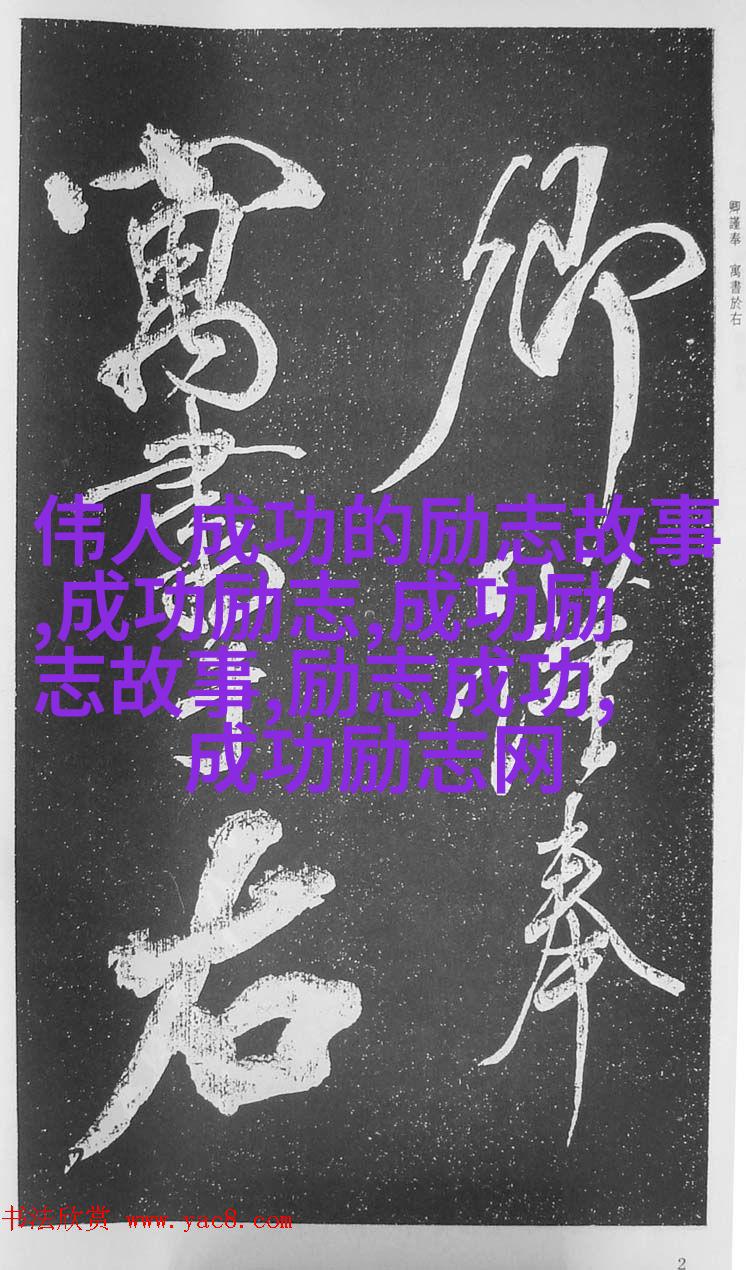 卿謹奉
寓書於右
卿謹奉　寓書於右
伟人成功的励志故事
,成功励志,成功励
志故事,励志成功,
成功励志网
书法欣赏 www.yac8.com
2